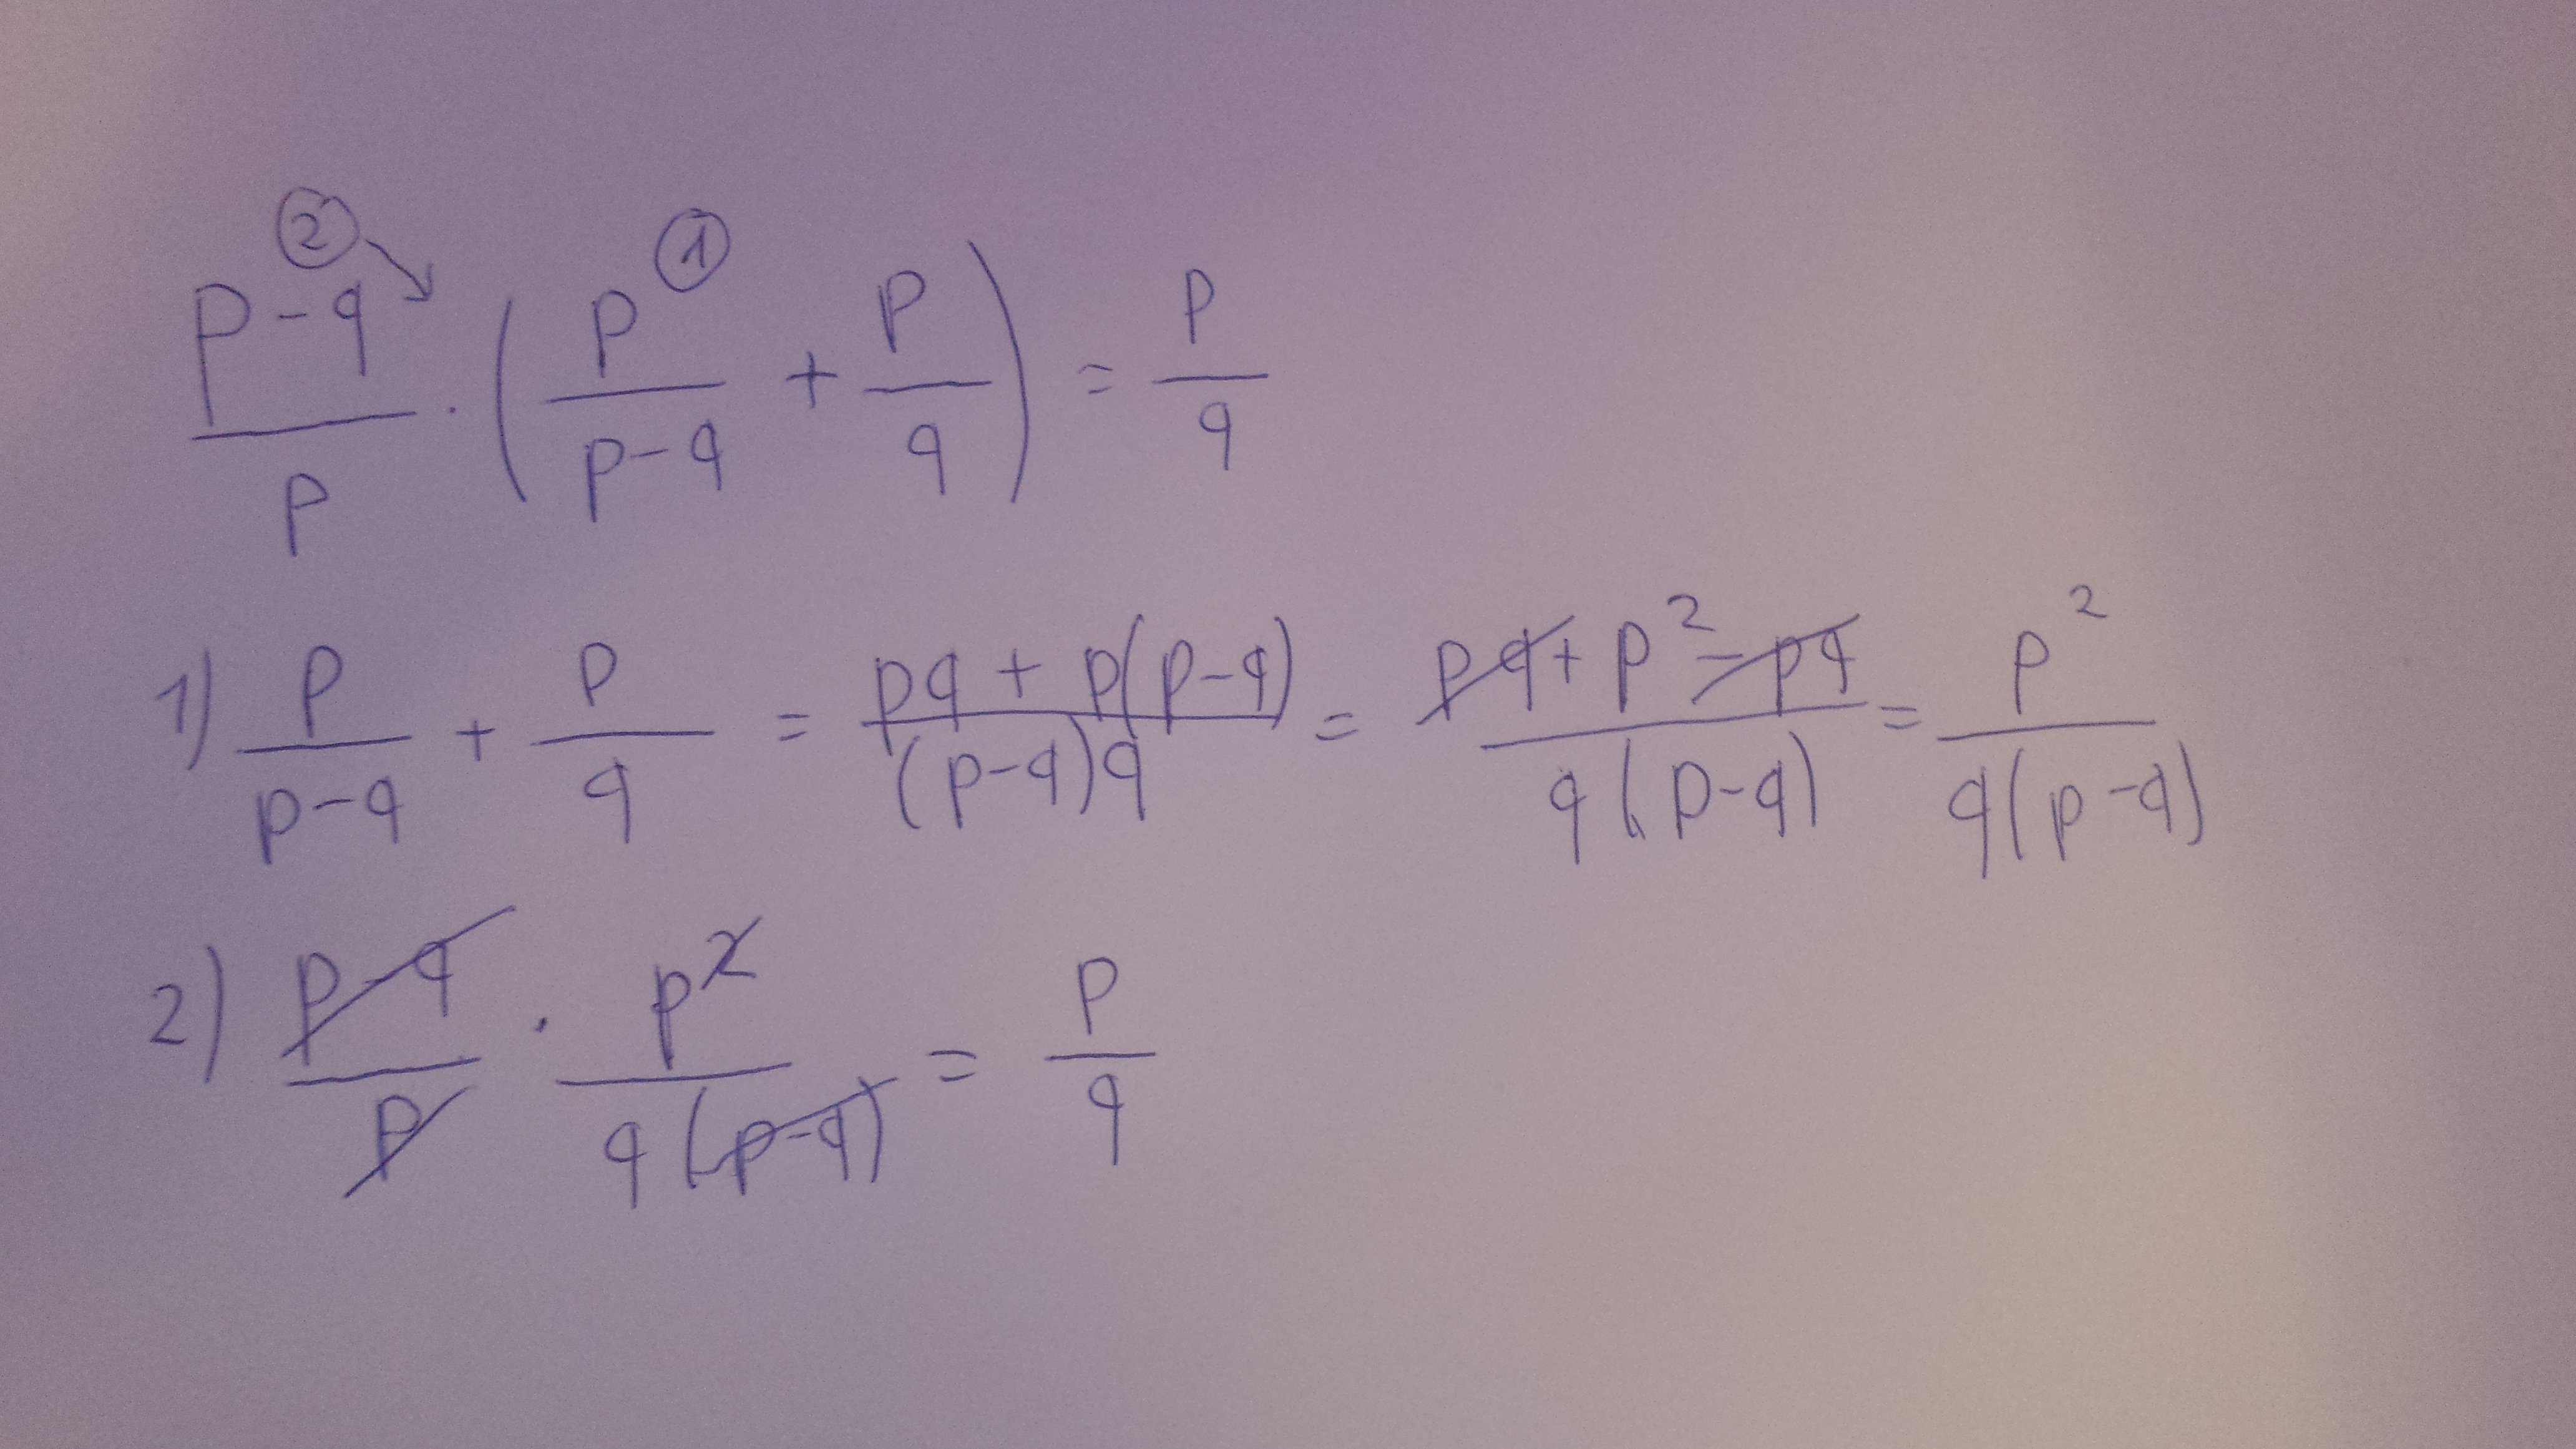 ② ①
(p-q)/p · (p/(p-q) + p/q) = p/q
1) p/(p-q) + p/q = (pq + p(p-q))/((p-q)q) = (pq + p² - pq)/(q(p-q)) = p²/(q(p-q))
2) (p-q)/p · p²/(q(p-q)) = p/q